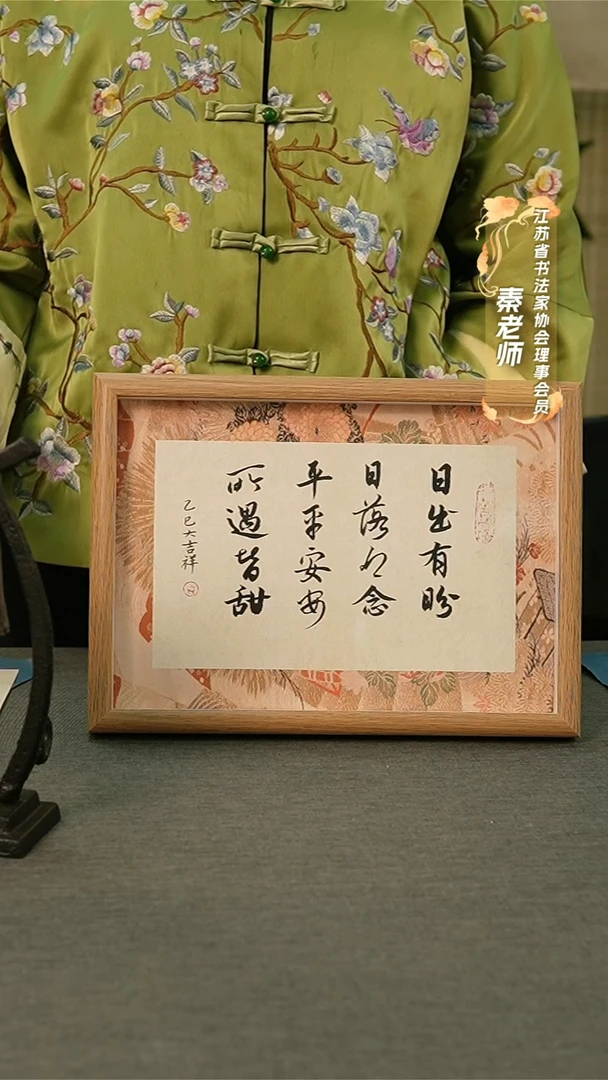 日出有盼
日落有念
平平安安
所遇皆甜
乙巳大吉祥
江苏省书法家协会理事会员
秦老师